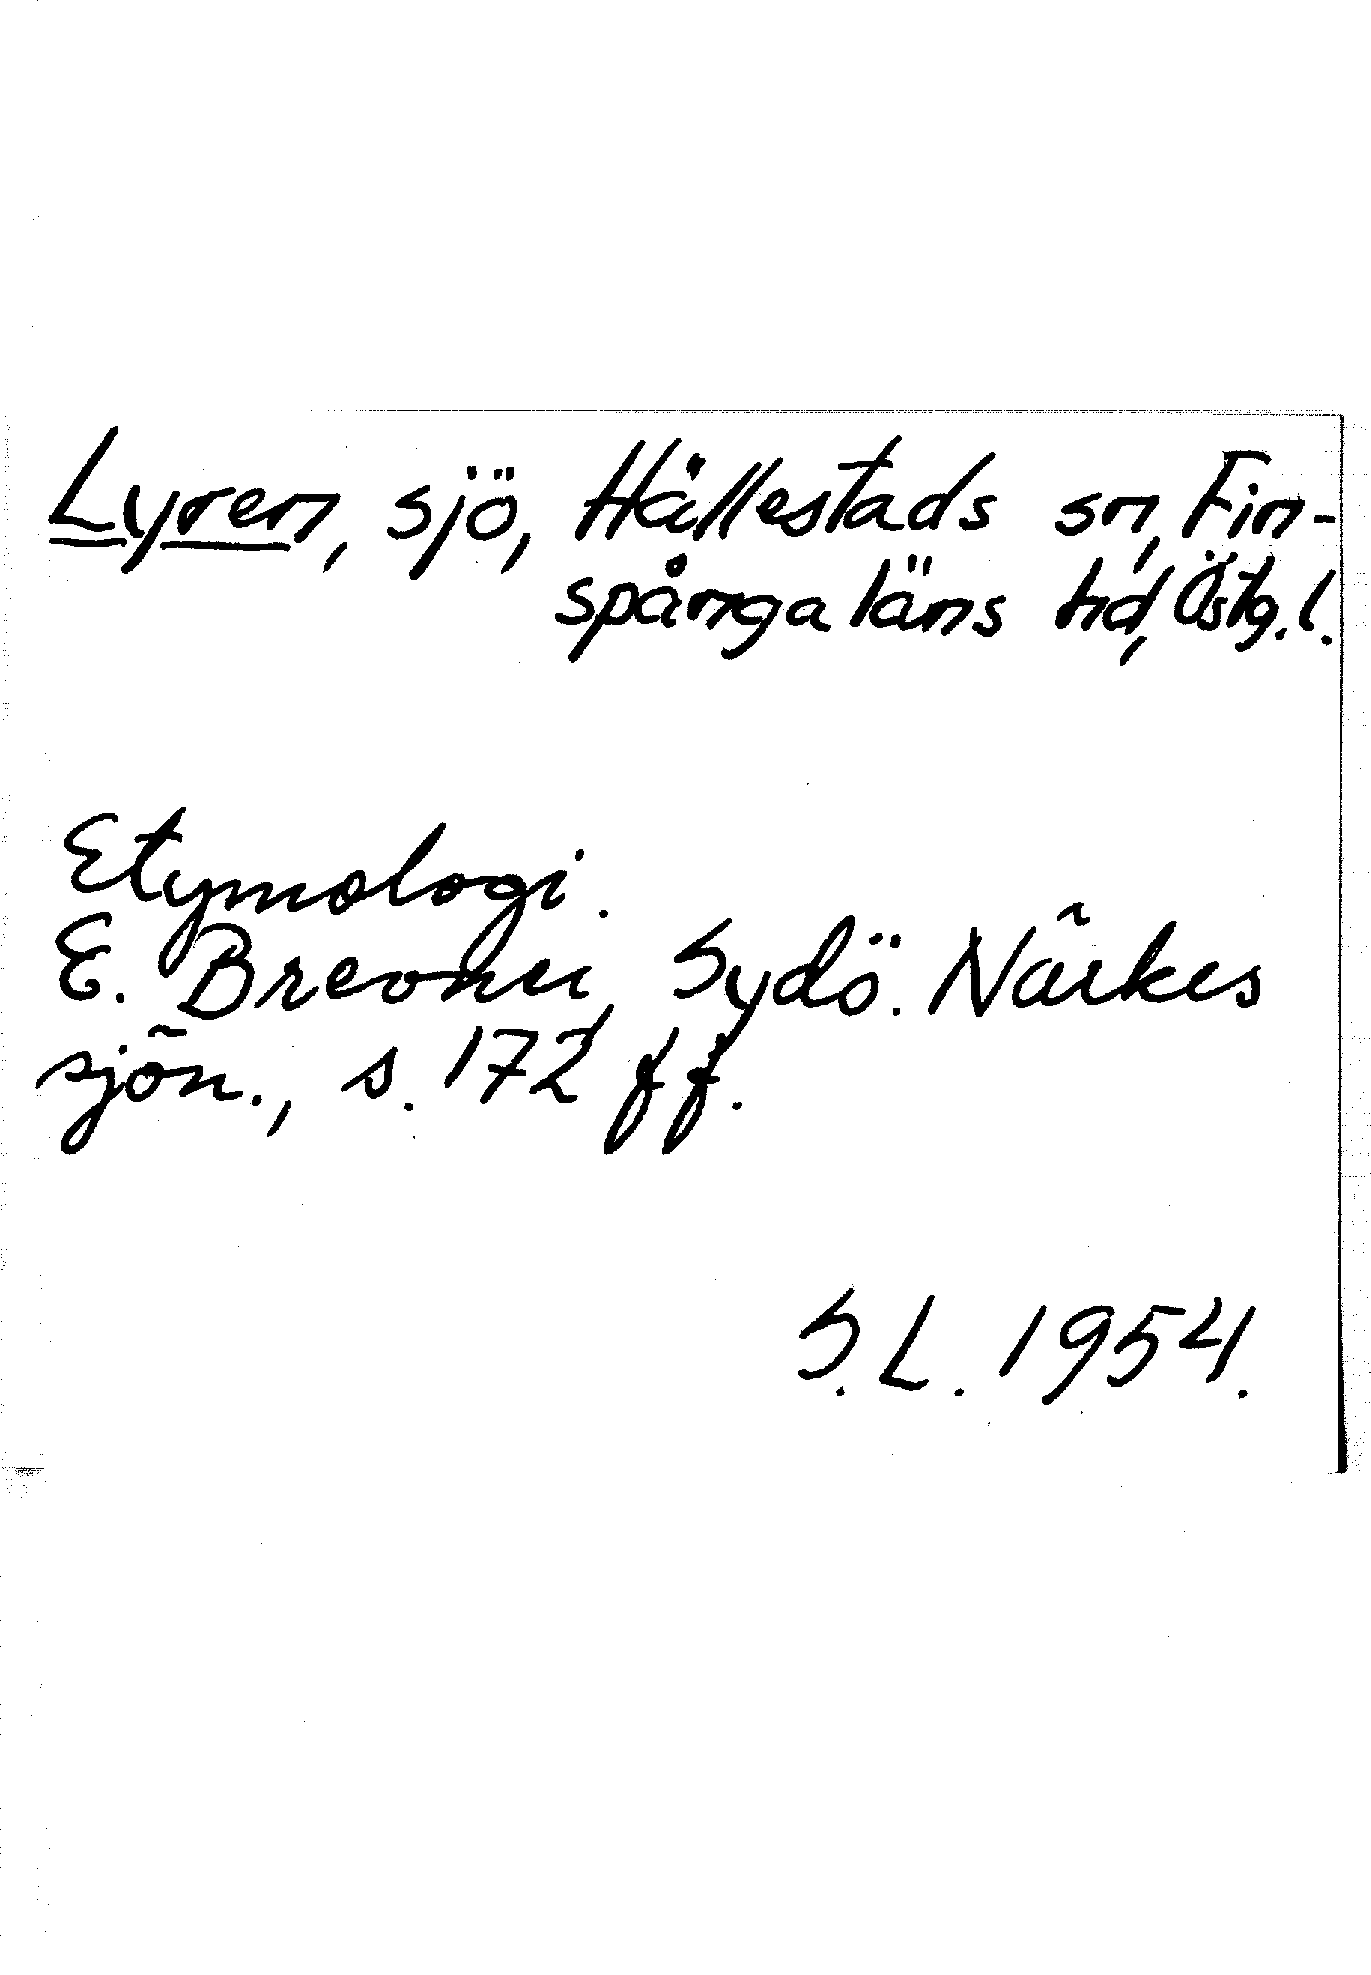 Lyren, sjö, Hällestads sn, Fin-
spånga läns hd, Östg. l.
Etymologi.
E. Brevner, Sydö. Närkes
sjön., s. 172 ff.
S. L. 1954.